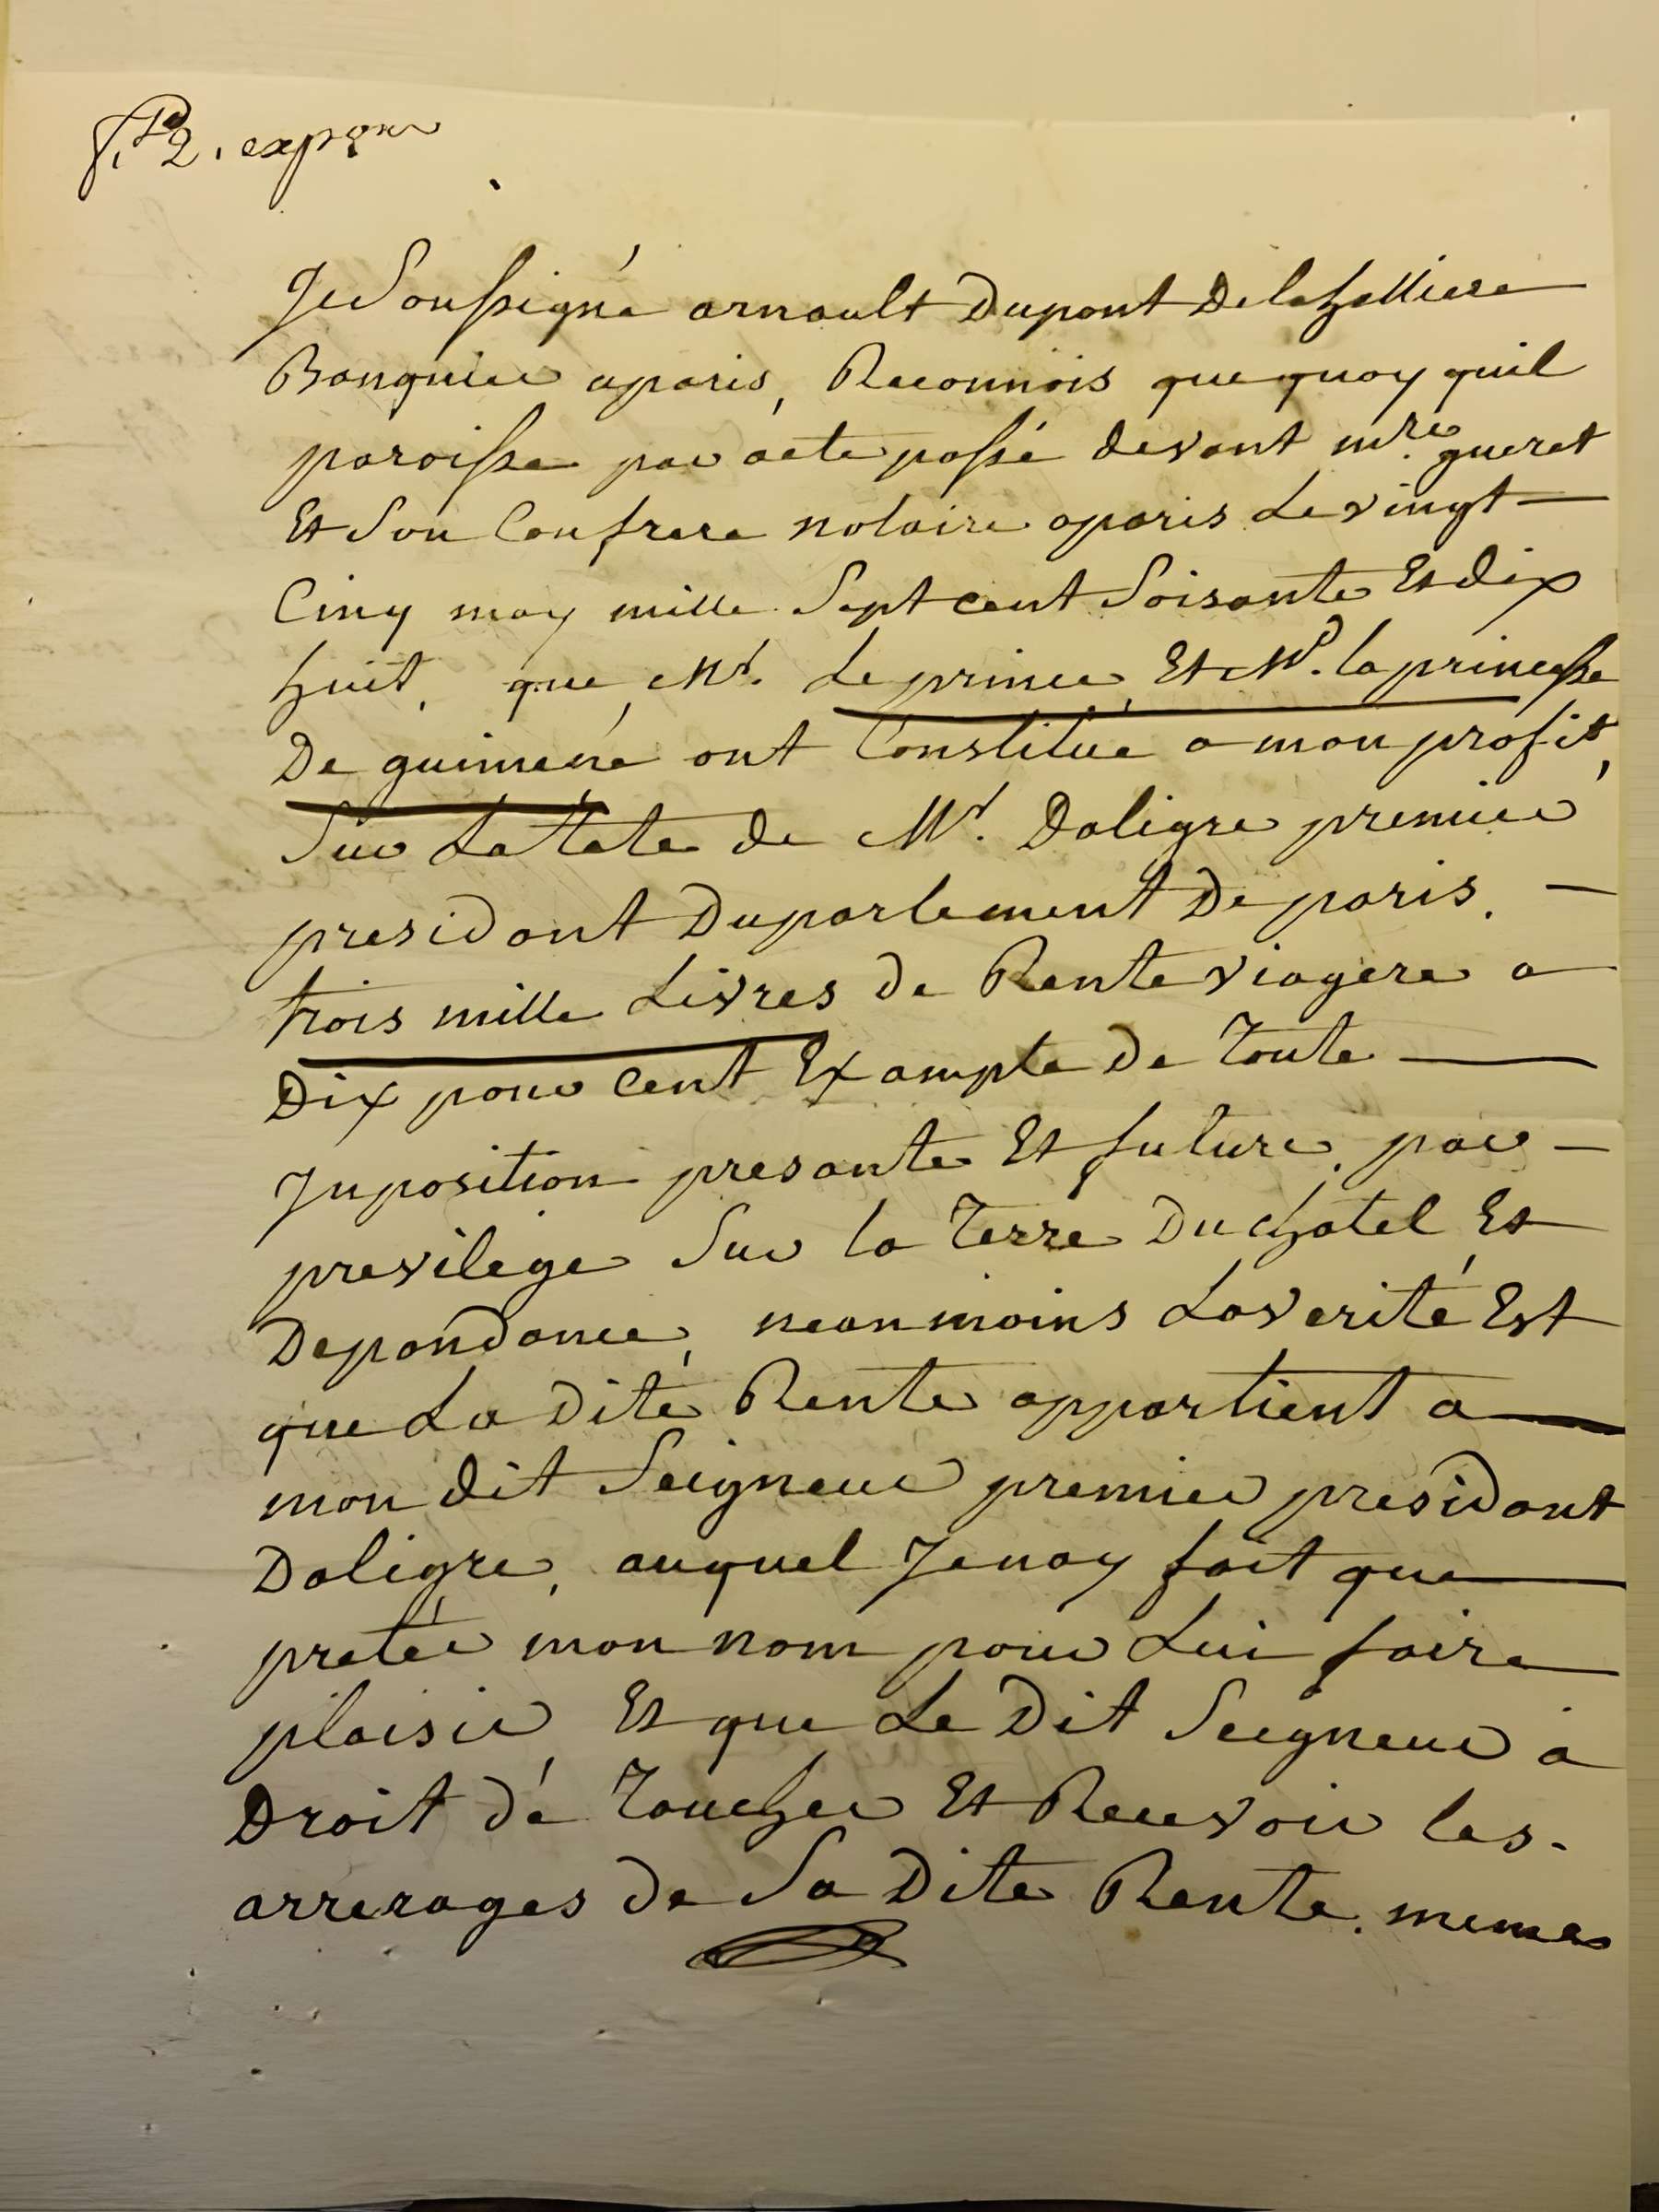 2. exp.on
Je Soussigné arnault Dupont Delahalliere
Banquier aparis, Reconnois que quoy quil
paroisse par acte passé devant mre. gueret
Et Son Confrere notaire aparis Le vingt
Cinq may mille Sept cent Soisante Et dix
huit, que Mr. Le prince Et Md. la princesse
De guimené ont Constitué a mon profit,
Sur La tete de Mr. Daligre premier
presidant Duparlement De paris.
trois mille Livres de Rente viagere a
Dix pour cent Exampte de toute
Inposition presante Et future, par
previlege Sur la terre Du chatel Et
Depandance, neanmoins La verité Est
que La dite Rente appartient a
mon dit Seigneur premier presidant
Daligre, auquel Jenay fait que
pretér mon nom pour Lui faire
plaisir, Et que Le Dit Seigneur a
Droit dé toucher Et Recevoir les
arrerages de La Dite Rente. memes